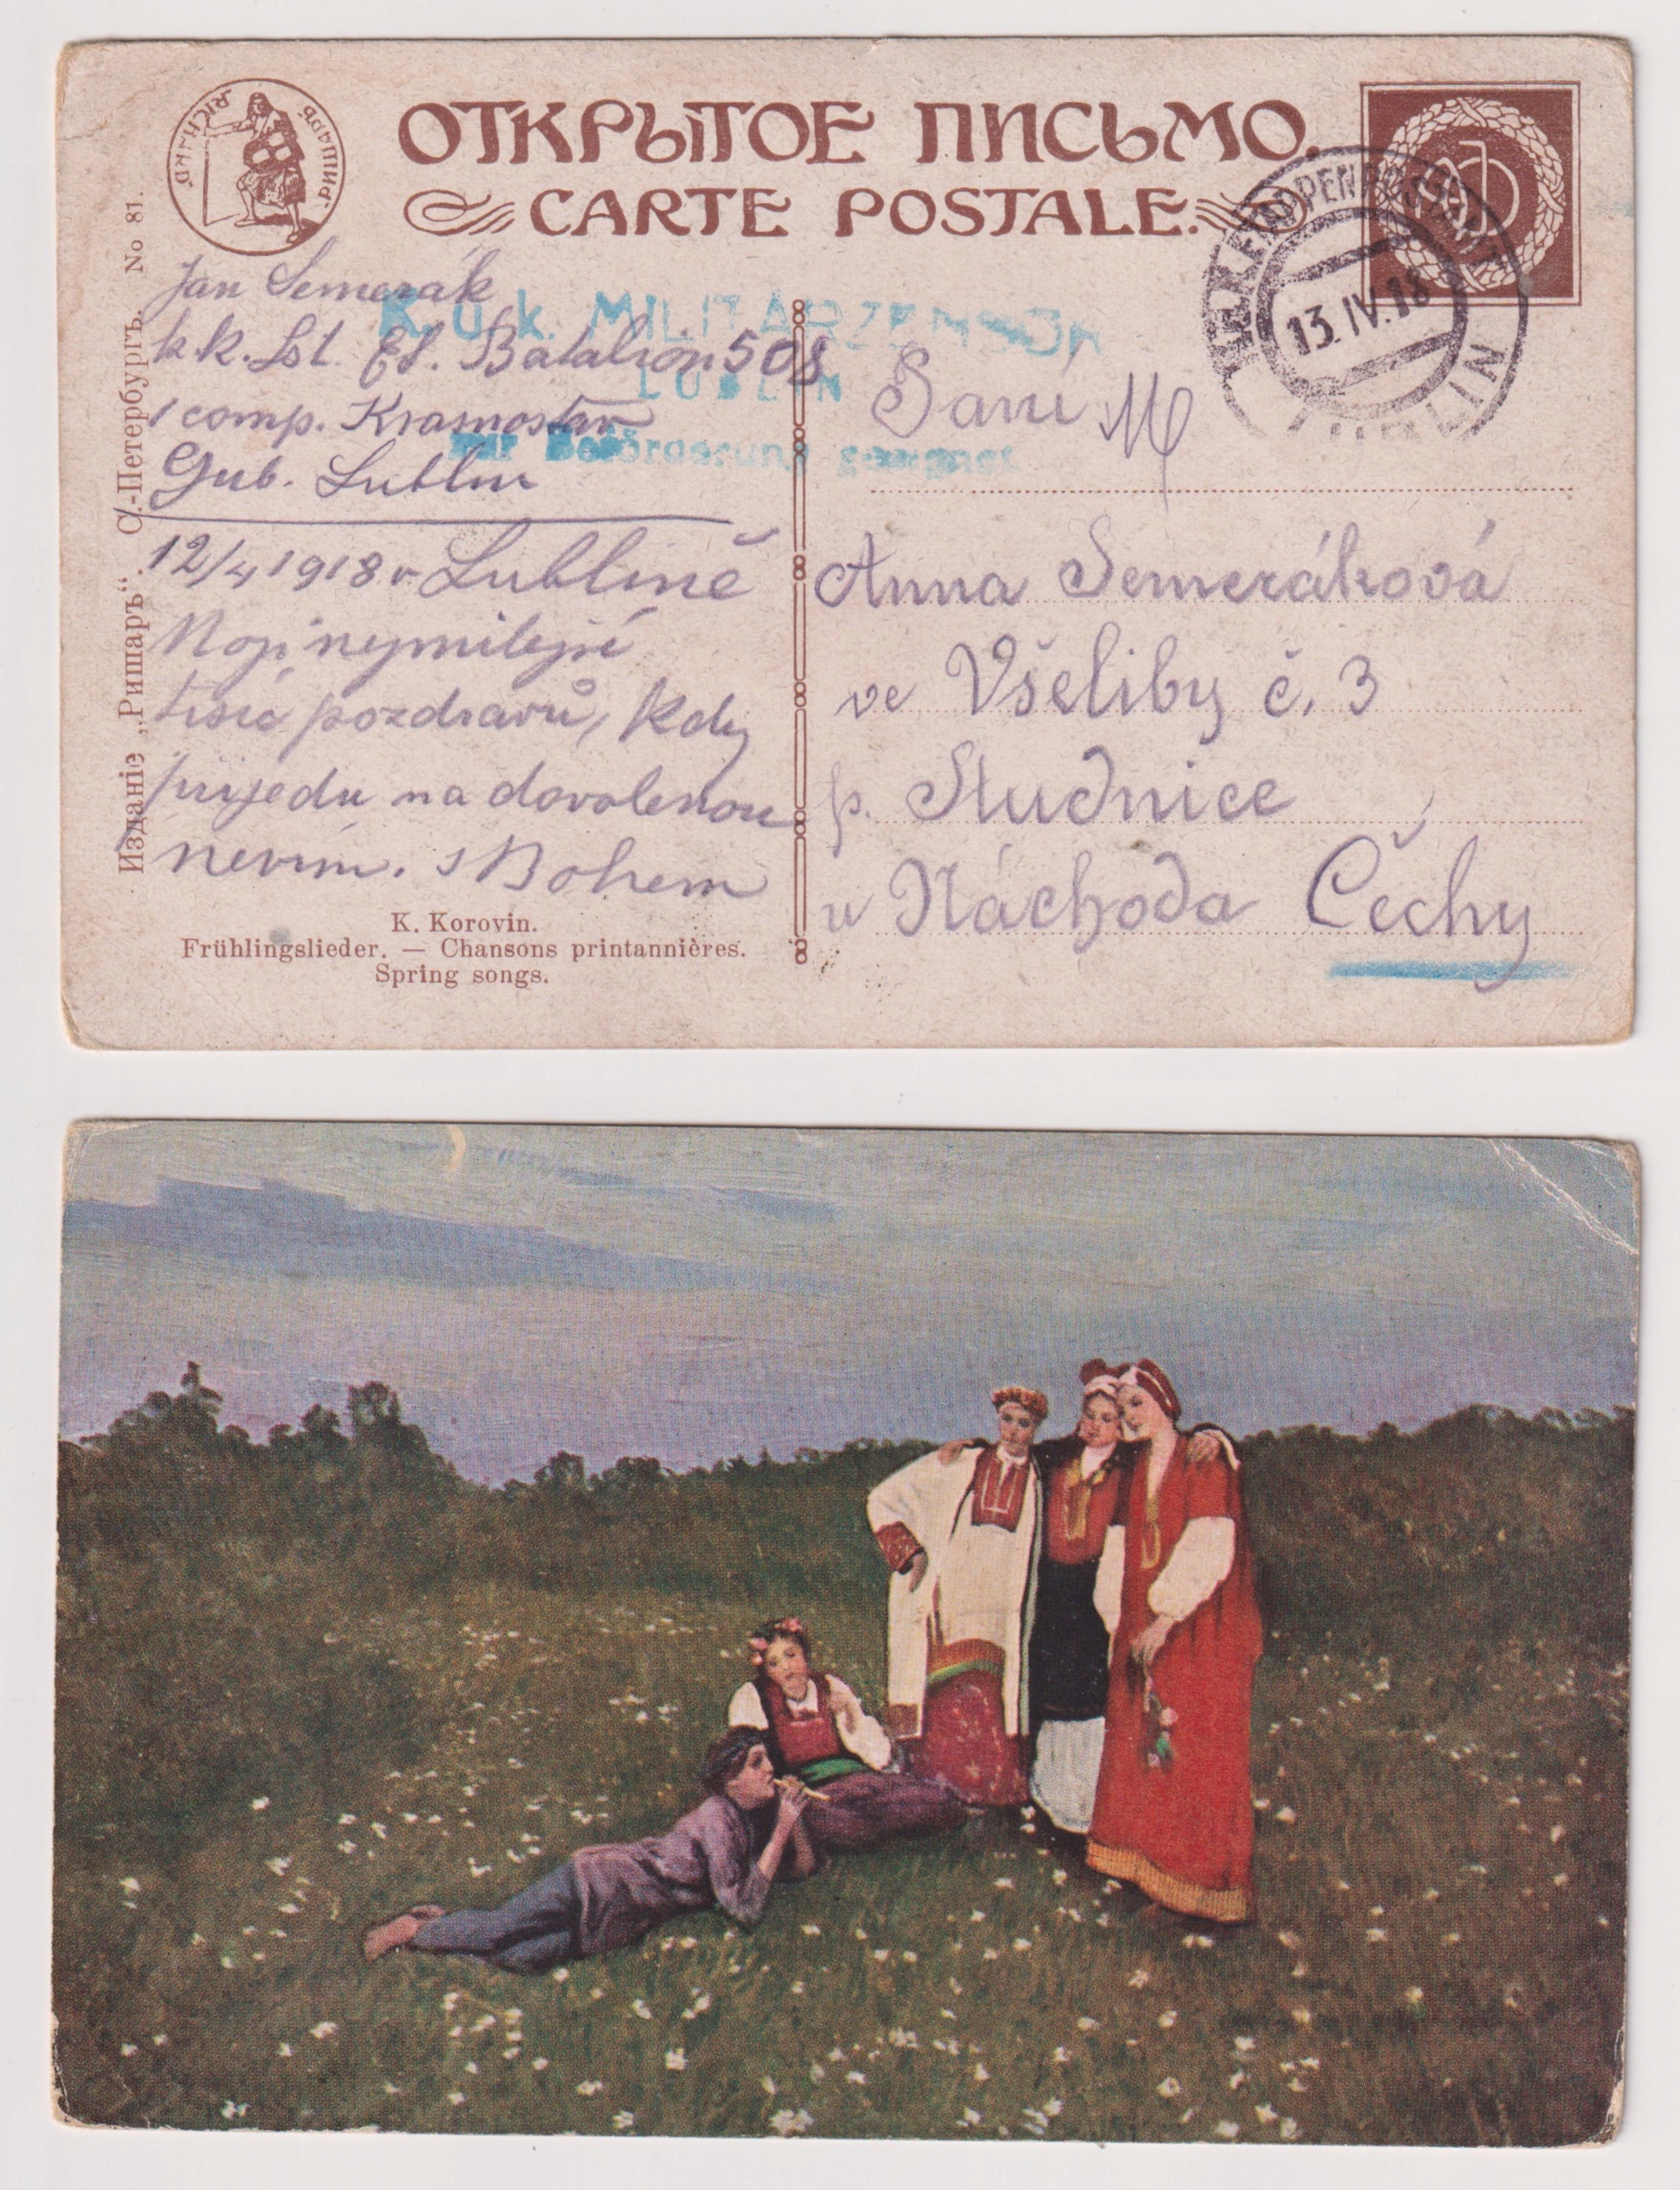 РИШАРЪ. RICHARD.
ОТКРЫТОЕ ПИСЬМО.
CARTE POSTALE.
K.u.K. ETAPPENPOSTAMT
13.IV.18
LUBLIN
Jan Semerák
k.k. Lst. Et. Batalion 508
1 comp. Krasnostav
Gub. Lublin
K.u.k. MILITÄRZENSUR
LUBLIN
zur Beförderung geeignet
12/4 1918 v Lublině
Moji nejmilejší
tisíc pozdravů, Kdy
přijedu na dovolenou
nevím. s Bohem
K. Korovin.
Frühlingslieder. — Chansons printannières.
Spring songs.
Издание „Ришаръ“. С.-Петербургъ. No 81.
Paní
Anna Semeráková
ve Všeliby č. 3
p. Studnice
u Náchoda Čechy